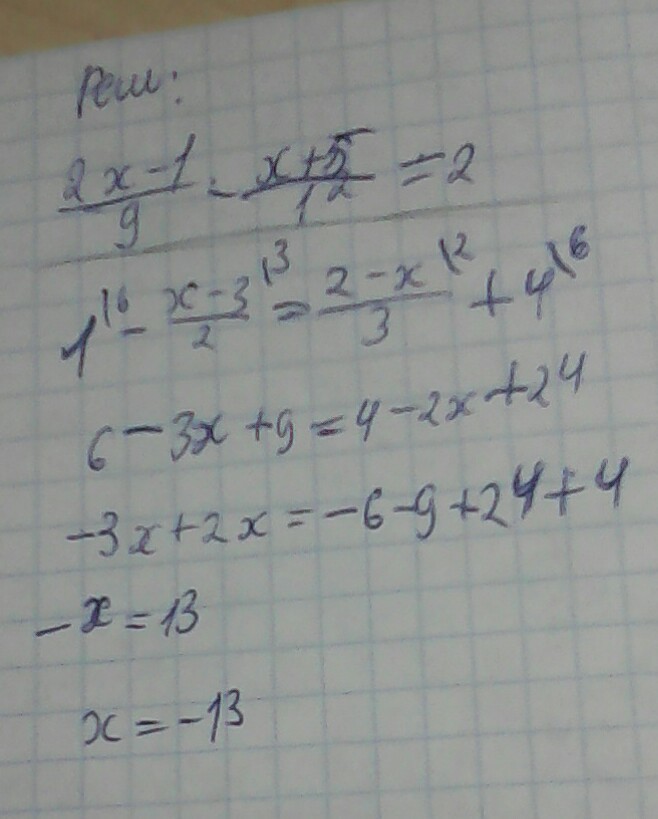 Реш:
(2x-1)/9 - (x+5)/12 = 2
1\6 - (x-3)/2 \3 = (2-x)/3 \2 + 4\6
6-3x+9=4-2x+24
-3x+2x=-6-9+24+4
-x=13
x=-13